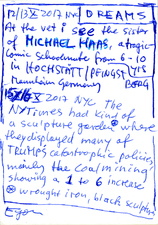 12/13 X 2017 NYC DREAMS
At the vet i see the sister
of MICHAEL HAAS, a tragic-
Comic Schoolmate from 6-10
in HOCHSTÄTT/PFINGST
BERG
Mannheim Germany
15/16 X 2017 NYC The
NYTimes had kind of
a sculpture garden where
they displayed many of
TRUMP'S catastrophic policies
mainly the Coalmining
showing a 1 to 6 increase
wrought iron, black sculpture